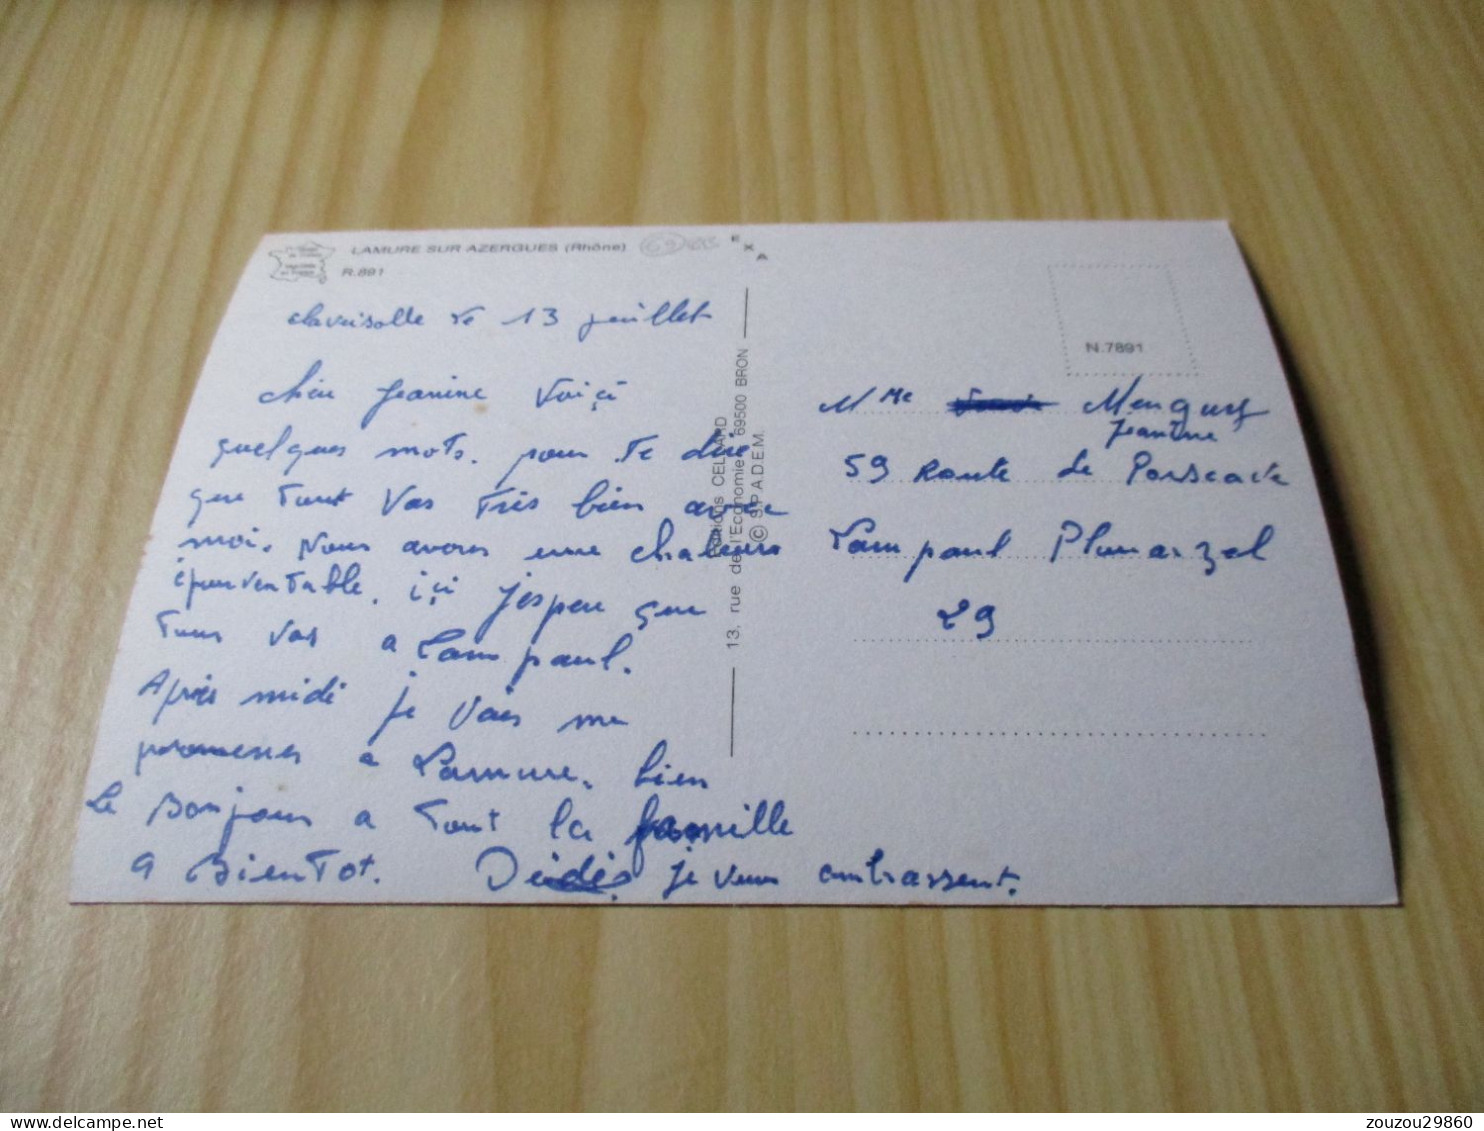 LAMURE SUR AZERGUES (Rhône)
R.891
EXA
claveisolle le 13 juillet
chère Jeanine Voiçi
quelques mots. pour te dire
que tout Vas très bien avec
moi. Nous avons une chaleurs
épouventable. içi j'espère que
tous vas a Lampaul.
Après midi je Vais me
promenes a Lamure. bien
Le Bonjour a tout la famille
a Bientot. Dédés je vous embrassent.
Editions CELLARD
13, rue de l'Economie, 69500 BRON
© S.P.A.D.E.M.
N.7891
Mme Menguy
Jeanine
59 Route de Porscave
Lampaul Plouarzel
29
zouzou29860